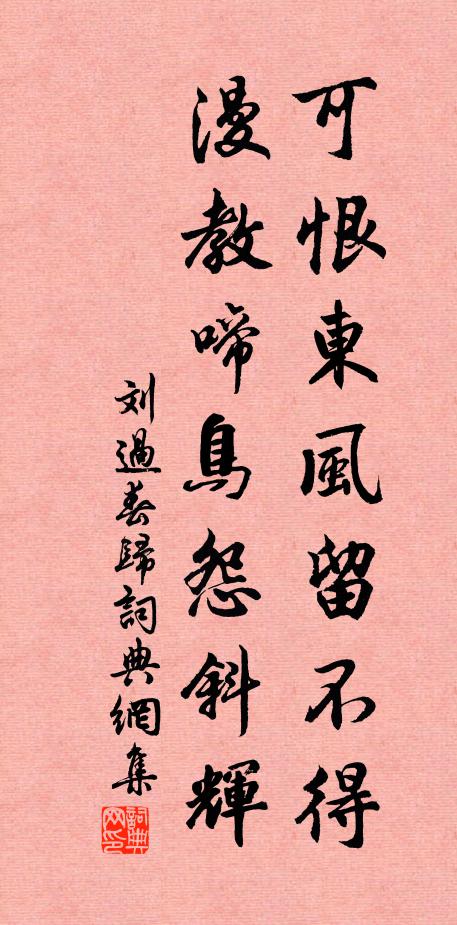 可恨東風留不得
漫教啼鳥怨斜輝
刘過春歸詞典網集
詞典网印